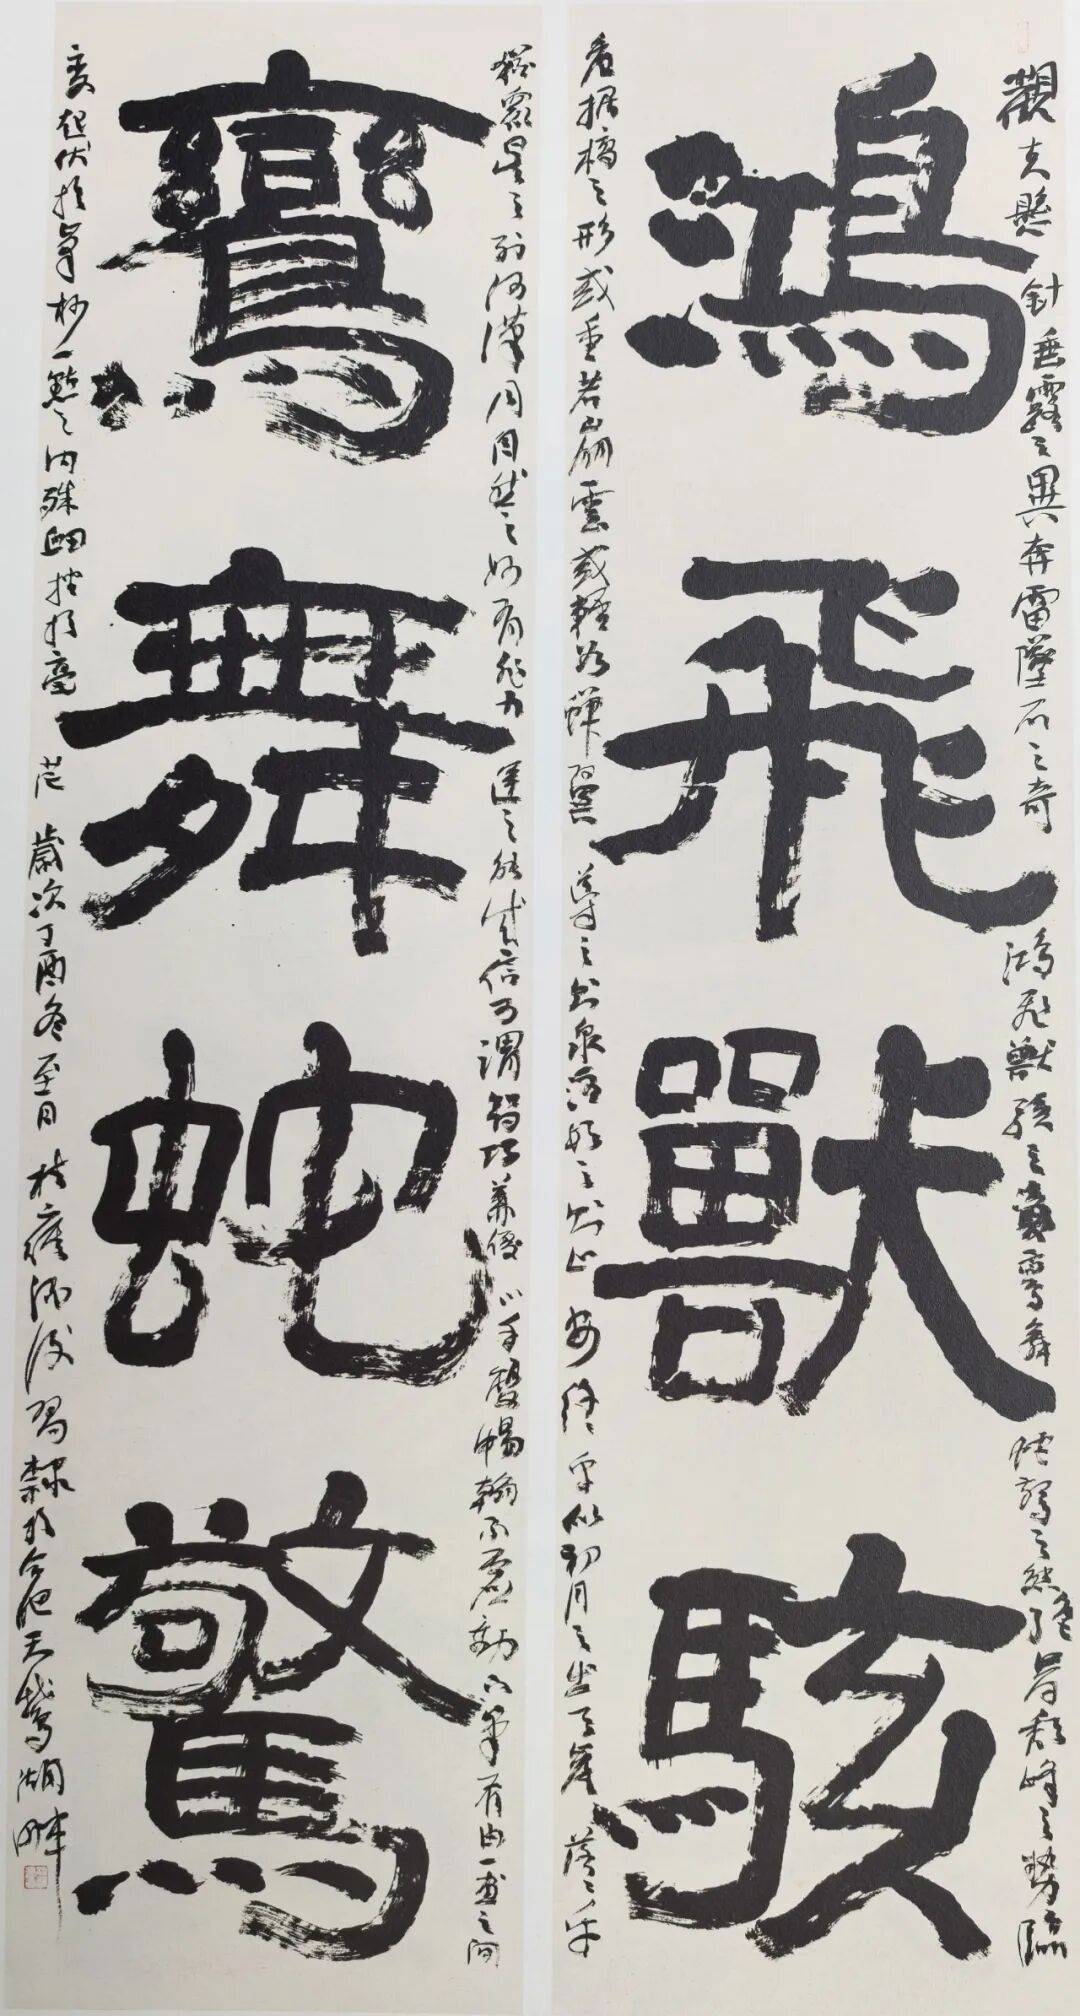 鴻飛獸駭
鸞舞蛇驚
觀夫懸針垂露之異奔雷墜石之奇鴻飛獸駭之資鸞舞蛇驚之態絕岸頹峰之勢臨
危據槁之形或重若崩雲或輕如蟬翼導之則泉注頓之則山安纖纖乎似初月之出天崖落落乎
猶眾星之列河漢同自然之妙有非力運之能成信可謂智巧兼優心手雙暢翰不虛動下筆有由一畫之間
變起伏於鋒杪一點之內殊衄挫於毫芒歲次丁酉冬至月於合肥天鵝湖畔